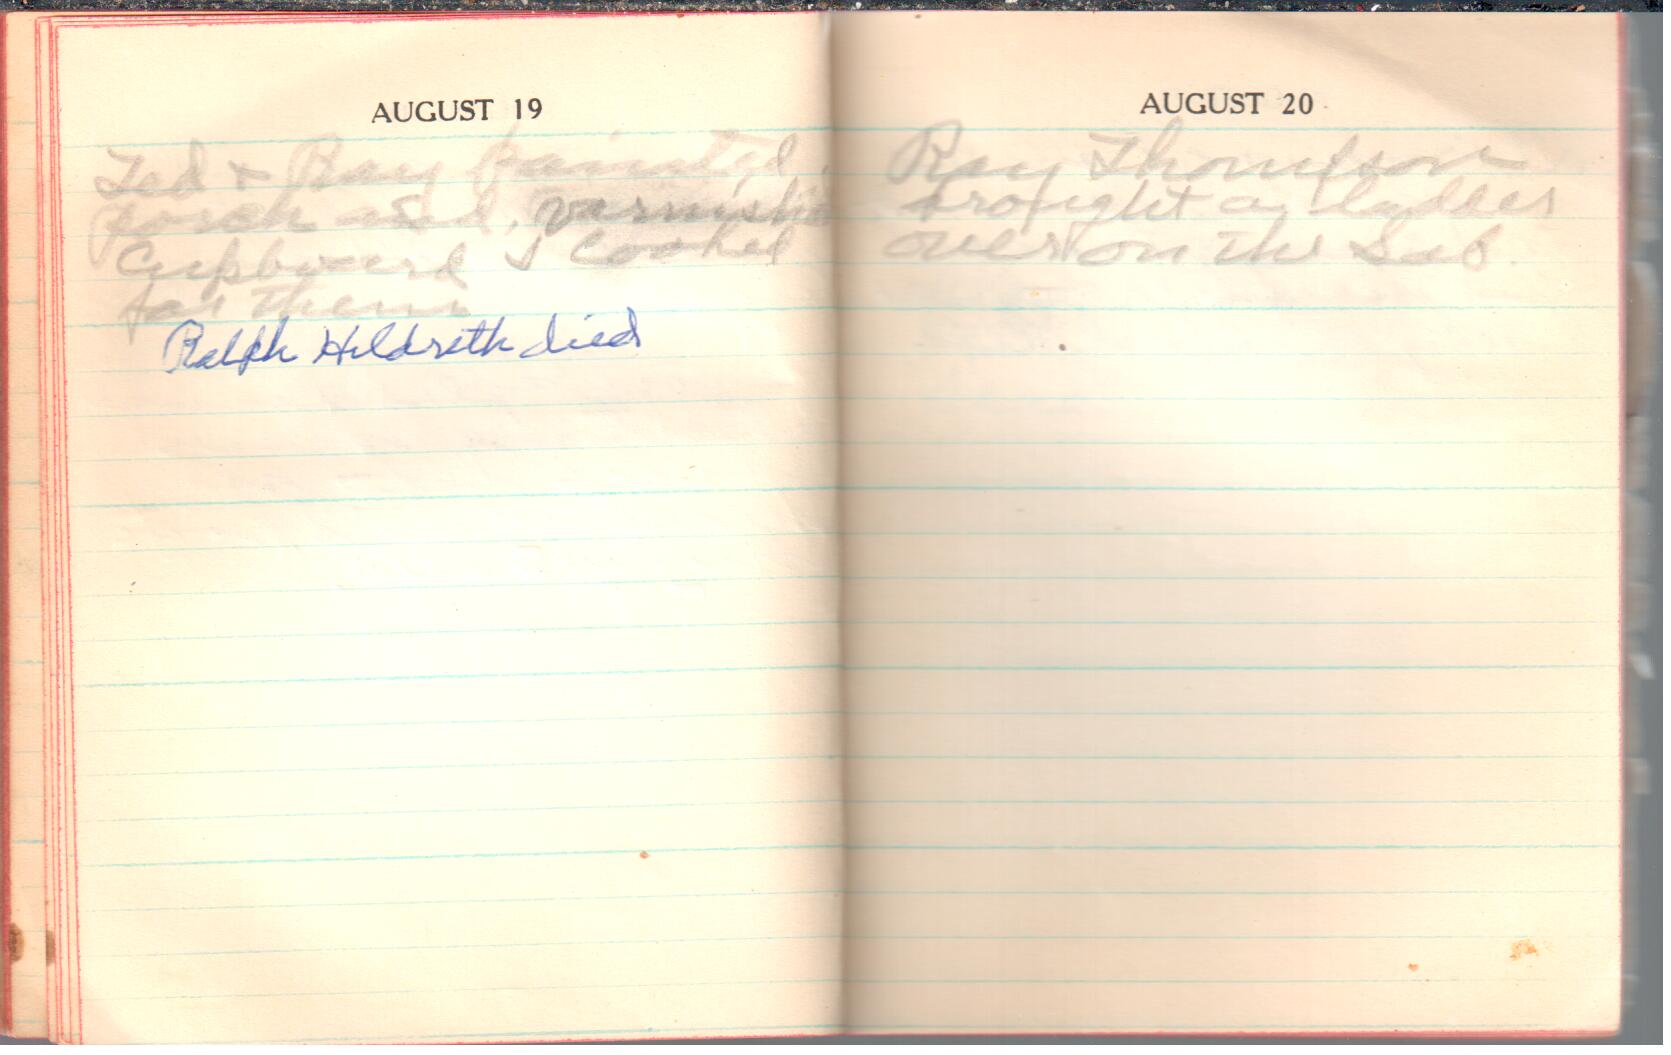 AUGUST 19
Ted + Ray painted
porch and varnished
Cupboard I Cooked
for them
Ralph Hildreth died
AUGUST 20
Ray Thomson
brought a ladder
over on the